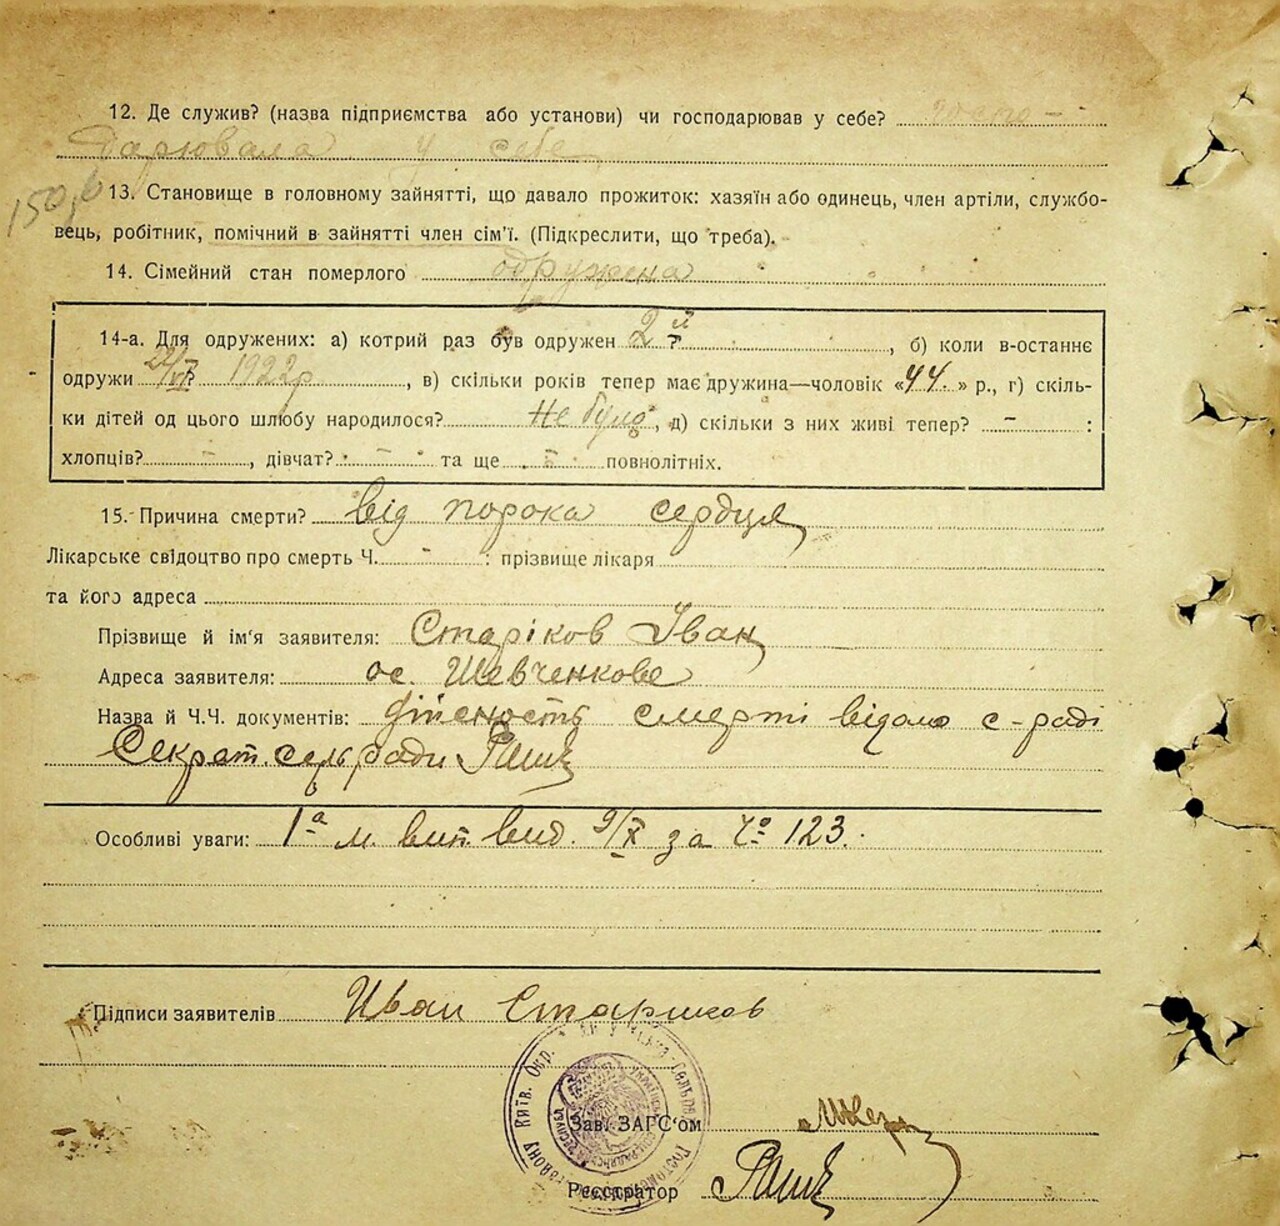 12. Де служив? (назва підприємства або установи) чи господарював у себе? госпо-
дарювала у себе
150,0
13. Становище в головному зайнятті, що давало прожиток: хазяїн або одинець, член артілі, службо-
вець, робітник, помічний в зайнятті член сім'ї. (Підкреслити, що треба).
14. Сімейний стан померлого одружена
14-а. Для одружених: а) котрий раз був одружен 2й, б) коли в-останнє
одружи 1922 р, в) скільки років тепер має дружина—чоловік «44» р., г) скіль-
ки дітей од цього шлюбу народилося? Не було, д) скільки з них живі тепер? - :
хлопців? -, дівчат? - та ще - повнолітніх.
15. Причина смерти? від порока сердця
Лікарське свідоцтво про смерть Ч. - : прізвище лікаря
та його адреса
Прізвище й ім'я заявителя: Старіков Іван
Адреса заявителя: ос. Шевченкове
Назва й Ч.Ч. документів: дійсность смерті відомо с-раді
Секрат. сельради
Особливі уваги: 1а м. вип. вид. 9/X за Чо 123.
Підписи заявителів Иван Стариков
Київ. Окр.
Зав. ЗАГС'ом
Реєстратор